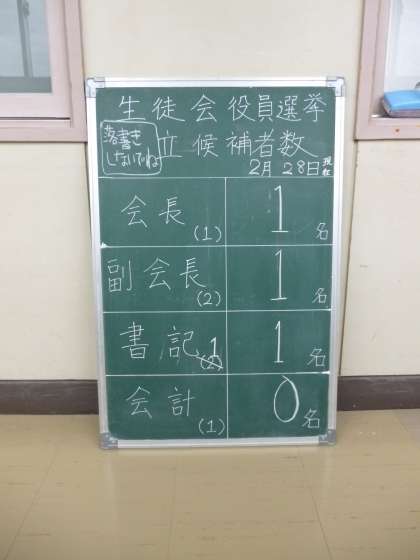 生徒会役員選挙
落書き
しないでね
立候補者数
2月28日現在
会長(1) 1名
副会長(2) 1名
書記1 1名
会計(1) 0名